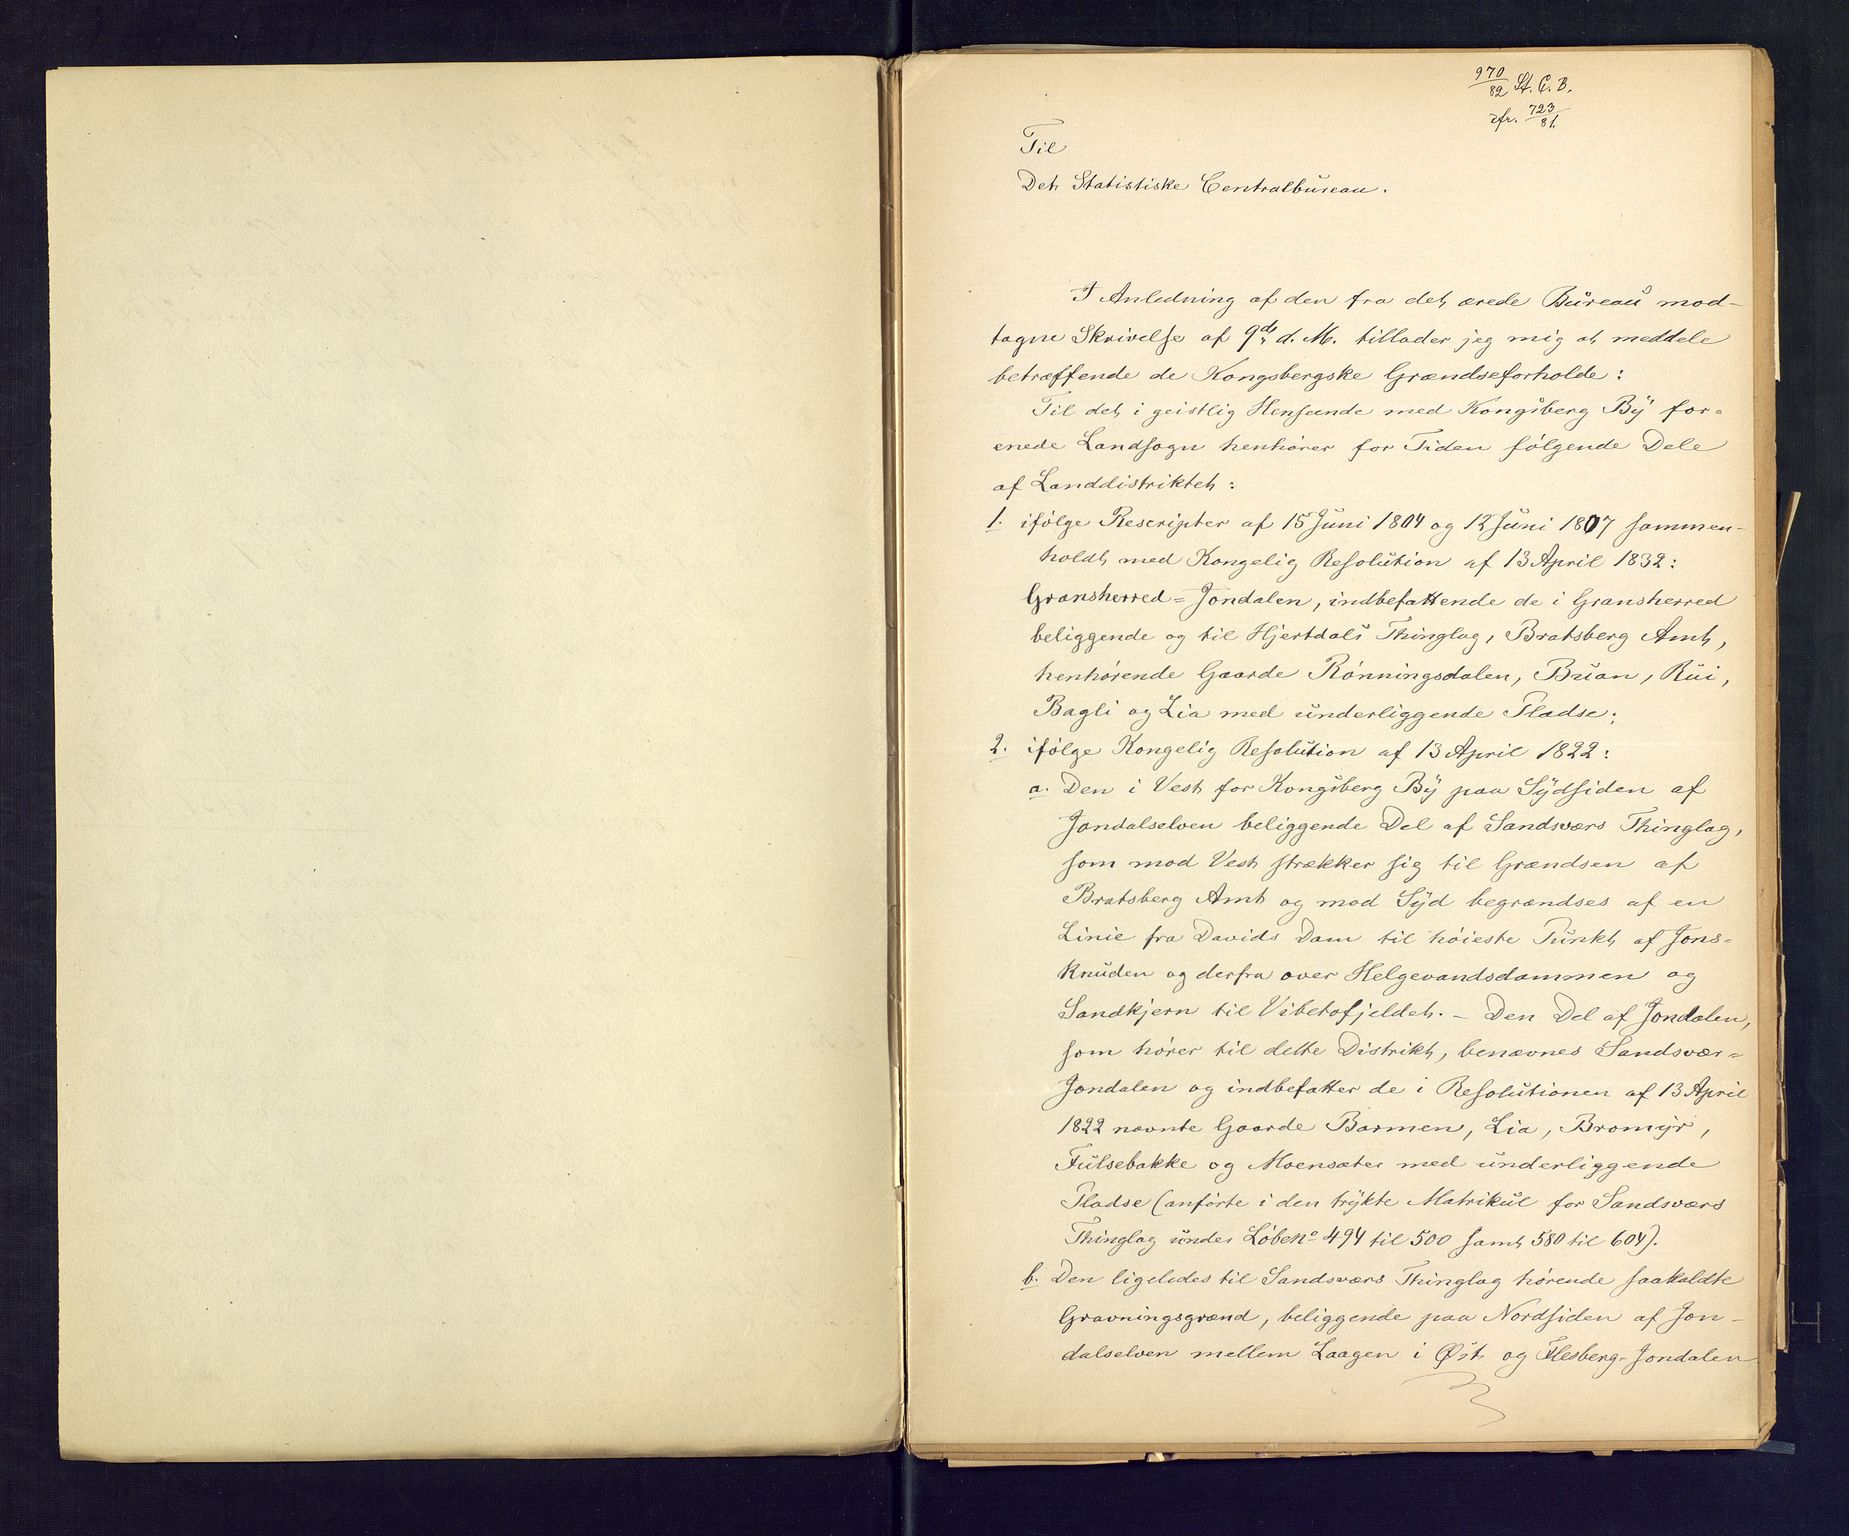 970/82 St. C. B.
cfr. 723/81.
Til
Det Statistiske Centralbureau.
I Anledning af den fra det ærede Bureau mod-
tagne Skrivelse af 9de d. M. tillader jeg mig at meddele
betræffende de Kongsbergske Grændseforholde:
Til det i geistlig Henseende med Kongsberg By for-
enede Landsogn henhører for Tiden følgende Dele
af Landdistriktet:
1. ifølge Rescripter af 15 Juni 1804 og 12 Juni 1807 sammen-
holdt med Kongelig Resolution af 13 April 1832:
Gransherred-Jondalen, indbefattende de i Gransherred
beliggende og til Hjertdals Thinglag, Bratsberg Amt,
henhørende Gaarde Rønningsdalen, Bruan, Rui,
Bagli og Lia med underliggende Pladse;
2. ifølge Kongelig Resolution af 13 April 1822:
a. Den i Vest for Kongsberg By paa Sydsiden af
Jondalselven beliggende Del af Sandsværs Thinglag,
som mod Vest strækker sig til Grændsen af
Bratsberg Amt og mod Syd begrændses af en
Linie fra Davids Dam til høieste Punkt af Jons-
knuden og derfra over Helgevandsdammen og
Sandkjern til Vibetofjeldet. - Den Del af Jondalen,
som hører til dette Distrikt, benævnes Sandsvær-
Jondalen og indbefatter de i Resolutionen af 13 April
1822 nævnte Gaarde Barmen, Lia, Bromyr,
Fulsebakke og Moensæter med underliggende
Pladse (anførte i den trykte Matrikul for Sandsværs
Thinglag under Løbeno 494 til 500 samt 580 til 604).
b. Den ligeledes til Sandsværs Thinglag hørende saakaldte
Gravningsgrænd, beliggende paa Nordsiden af Jon-
dalselven mellem Laagen i Øst og Flesberg-Jondalen